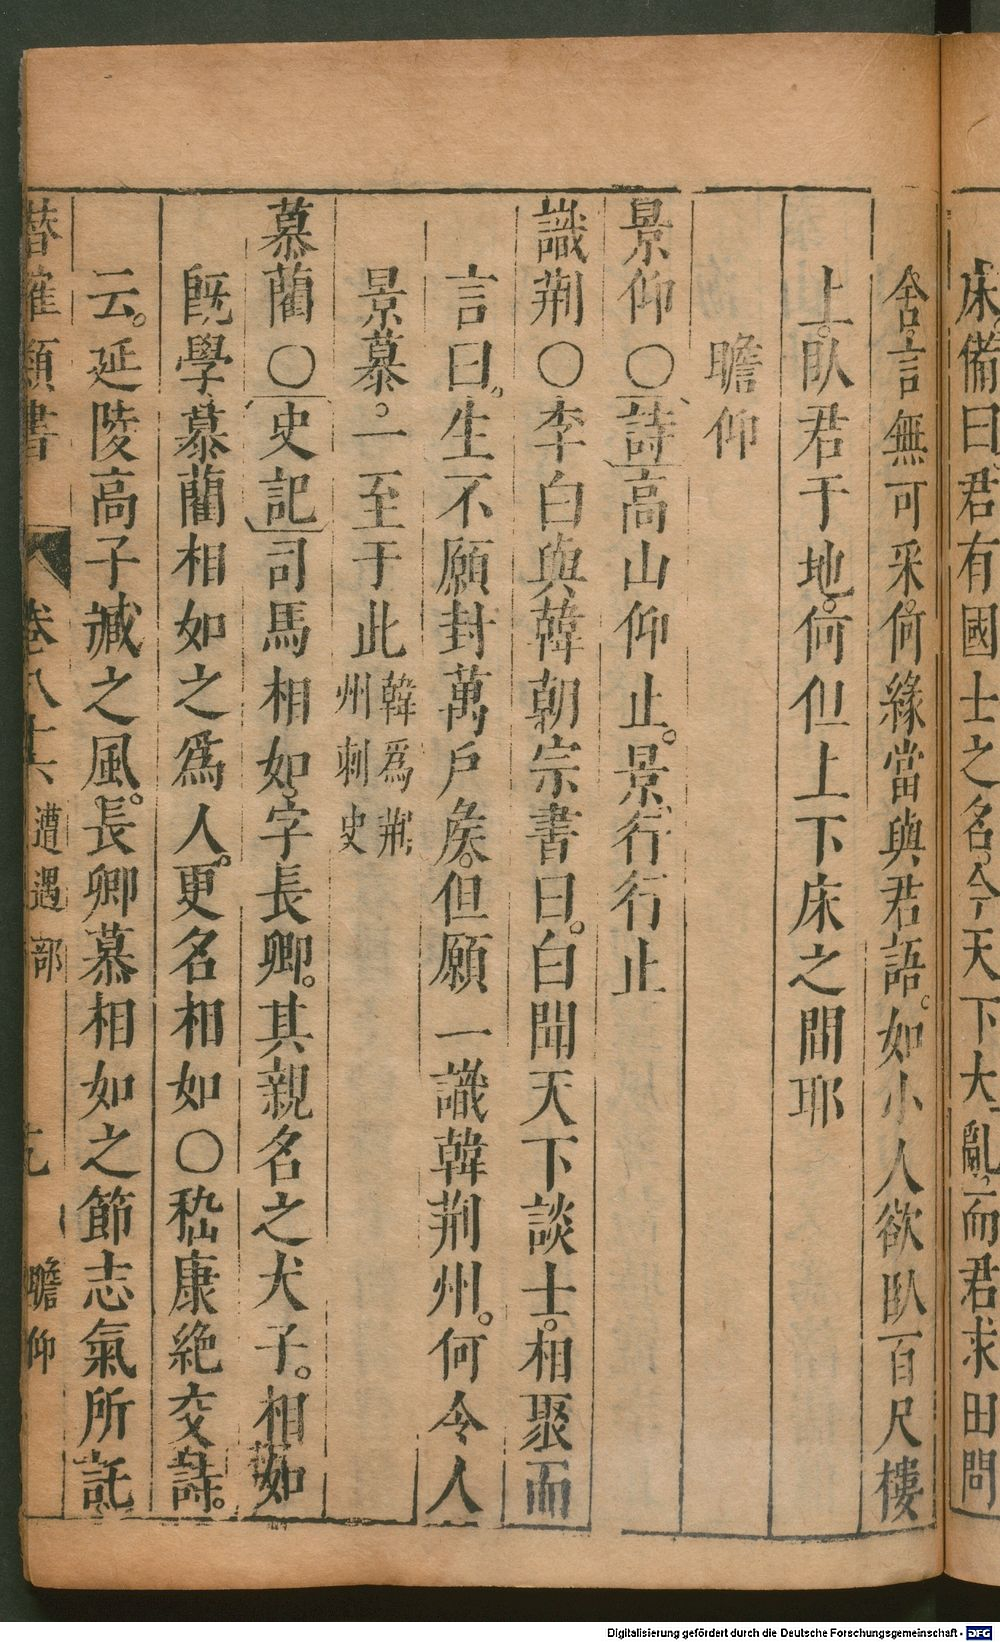 床備曰君有國士之名。今天下大亂。而君求田問
舍言無可采。何緣當與君語。如小人欲臥百尺樓
上。臥君于地。何但上下床之間耶
瞻仰
景仰○詩高山仰止。景行行止
識荆○李白與韓朝宗書曰。白聞天下談士。相聚而
言曰。生不願封萬戶矦。但願一識韓荆州。何令人
景慕。一至于此韓爲荆州刺史
慕藺○史記司馬相如。字長卿。其親名之犬子。相如
既學慕藺相如之爲人。更名相如○嵇康絶交詩。
云。延陵高子臧之風。長卿慕相如之節志氣所託
類書 卷八十六 遭遇部 瞻仰
Digitalisierung gefördert durch die Deutsche Forschungsgemeinschaft - DFG